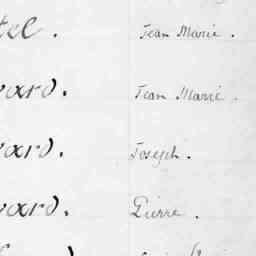 tel. Jean Marie.
vard. Jean Marie.
vard. Joseph.
vard. Pierre.